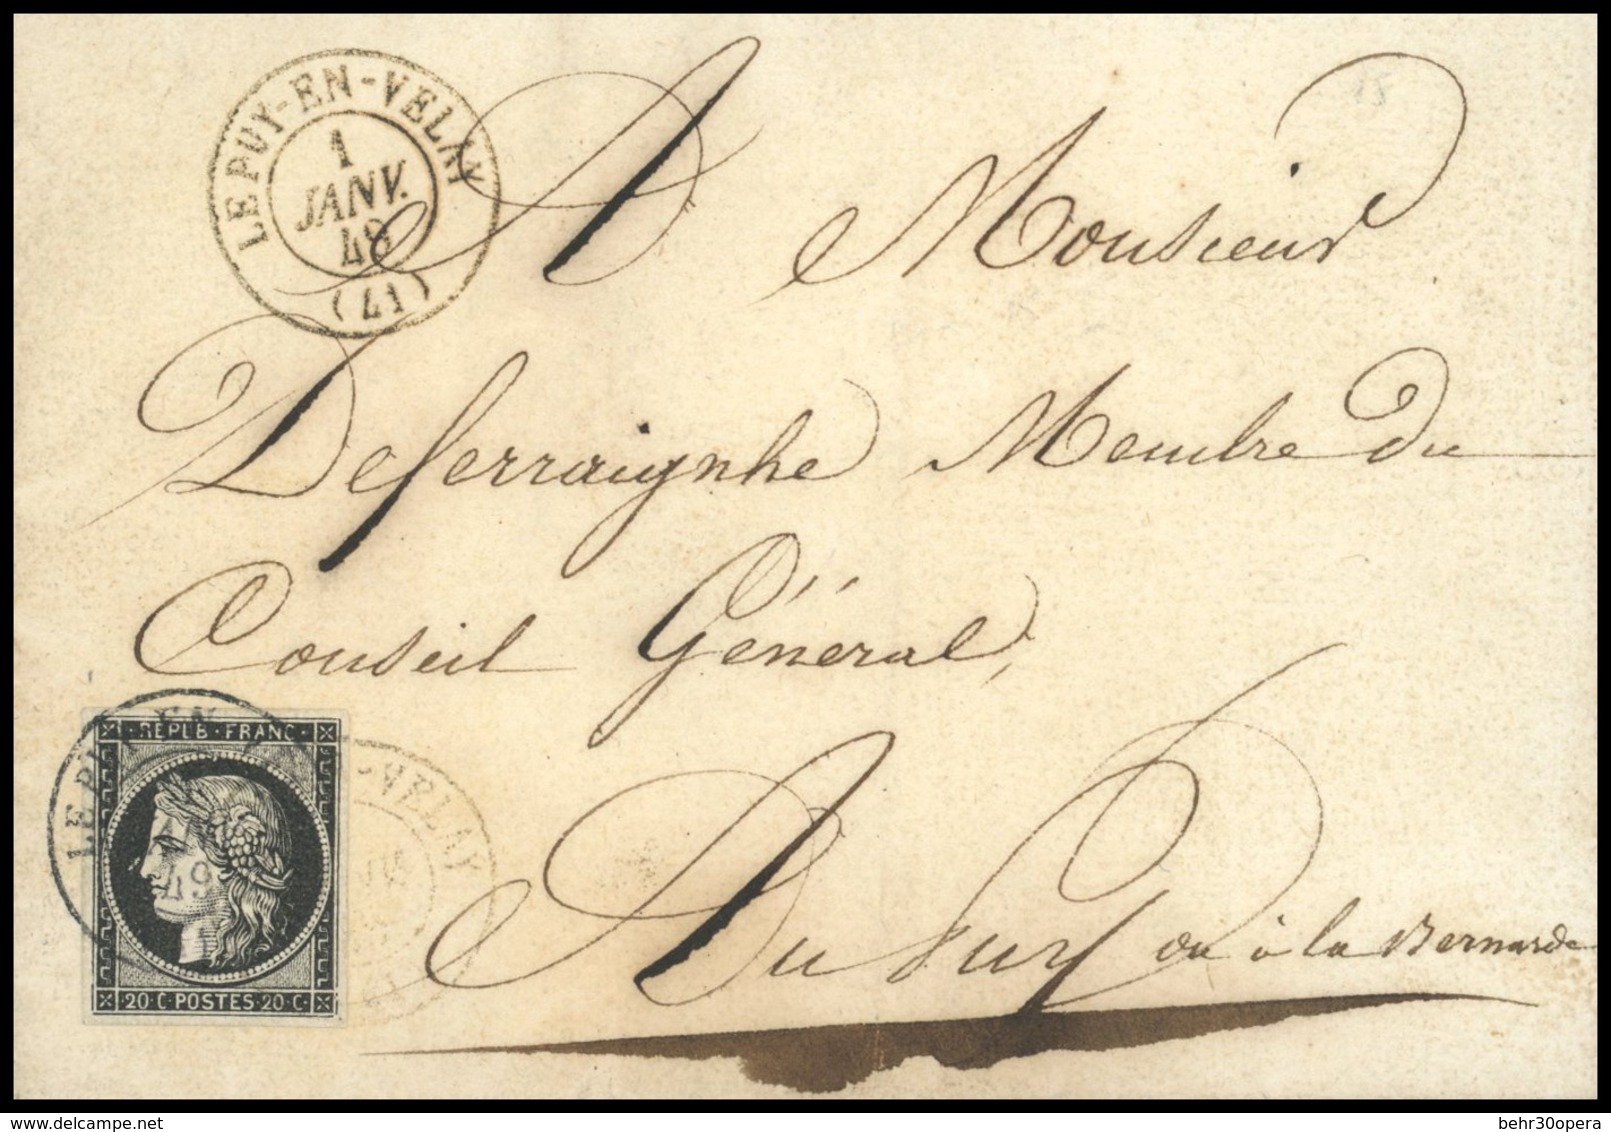 LE PUY-EN-VELAY
1
JANV.
49
(41)
A Monsieur
Deferraignhe Membre du
Conseil Général,
Au Puy ou à la Bernarde
REPUB·FRANC·
20·C·POSTES·20·C·
LE PUY-EN
49
VELAY
behr30opera